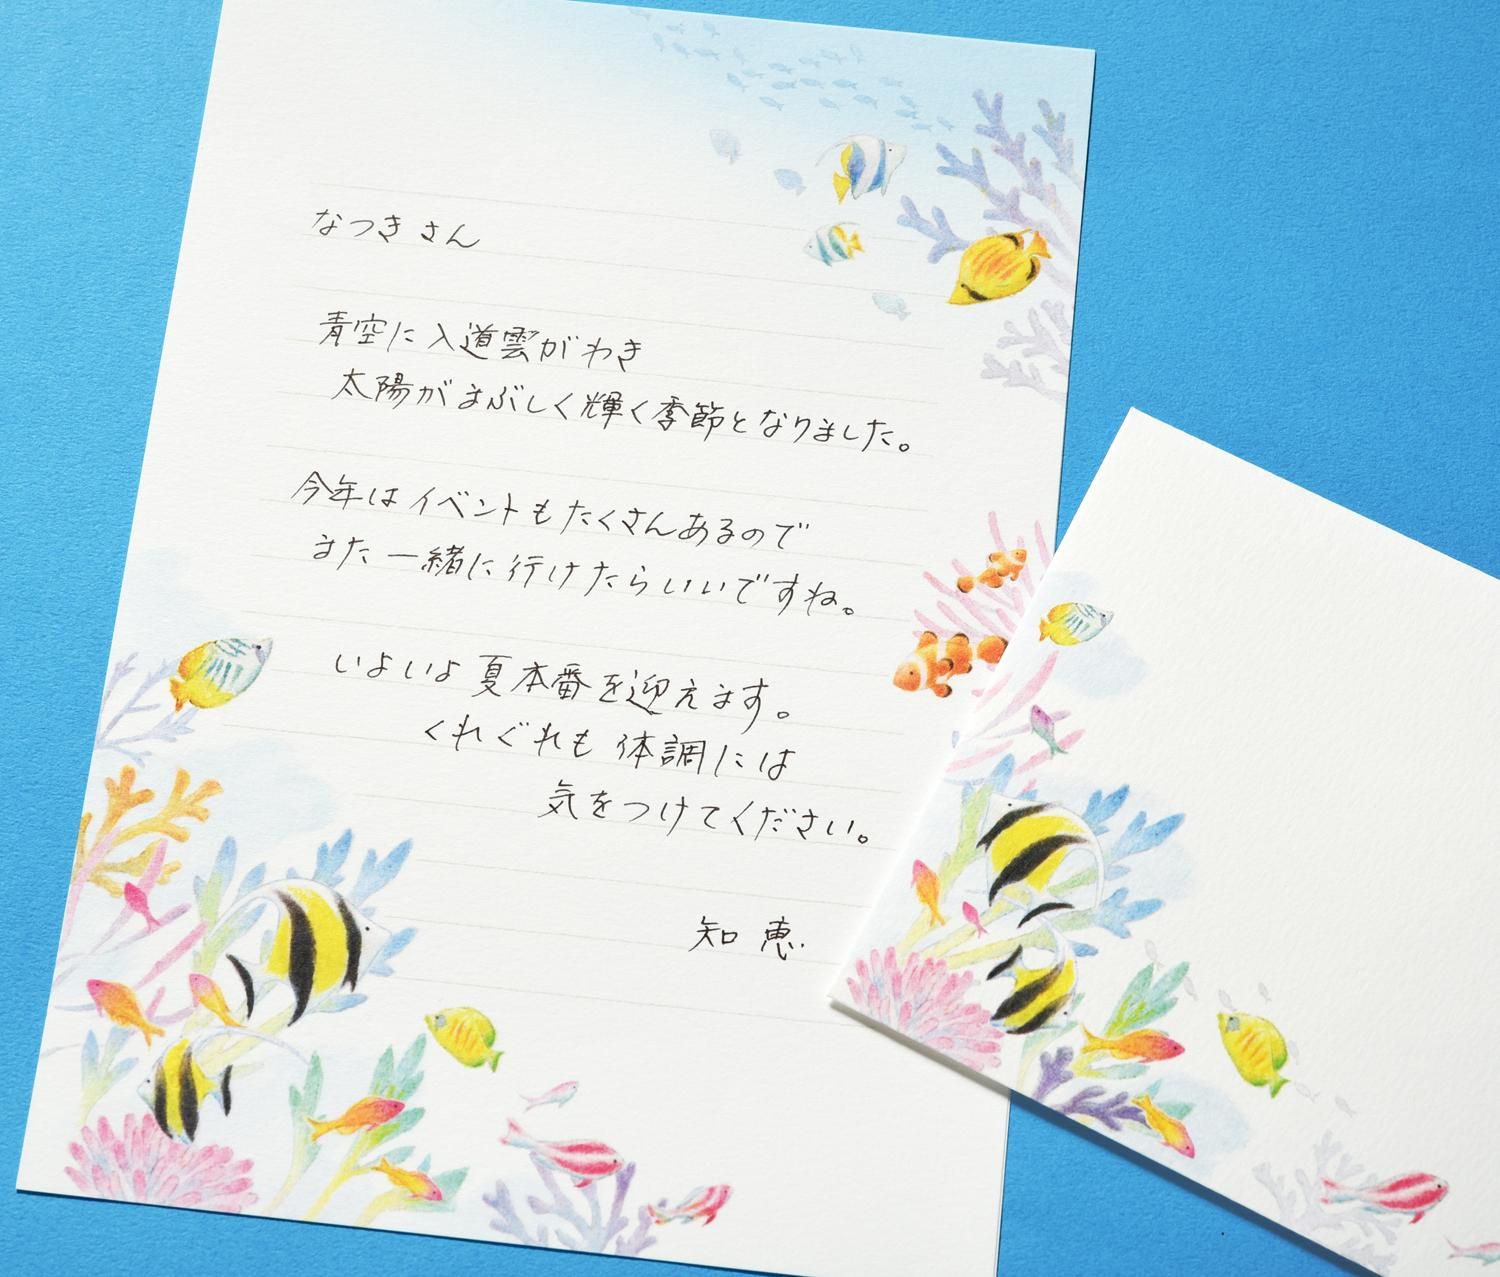 なつきさん
青空に入道雲がわき
太陽がまぶしく輝く季節となりました。
今年はイベントもたくさんあるので
また一緒に行けたらいいですね。
いよいよ夏本番を迎えます。
くれぐれも体調には
気をつけてください。
知恵